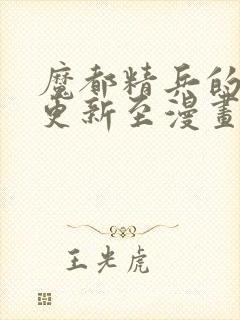 魔都精兵的
更新至漫畫
王光虎